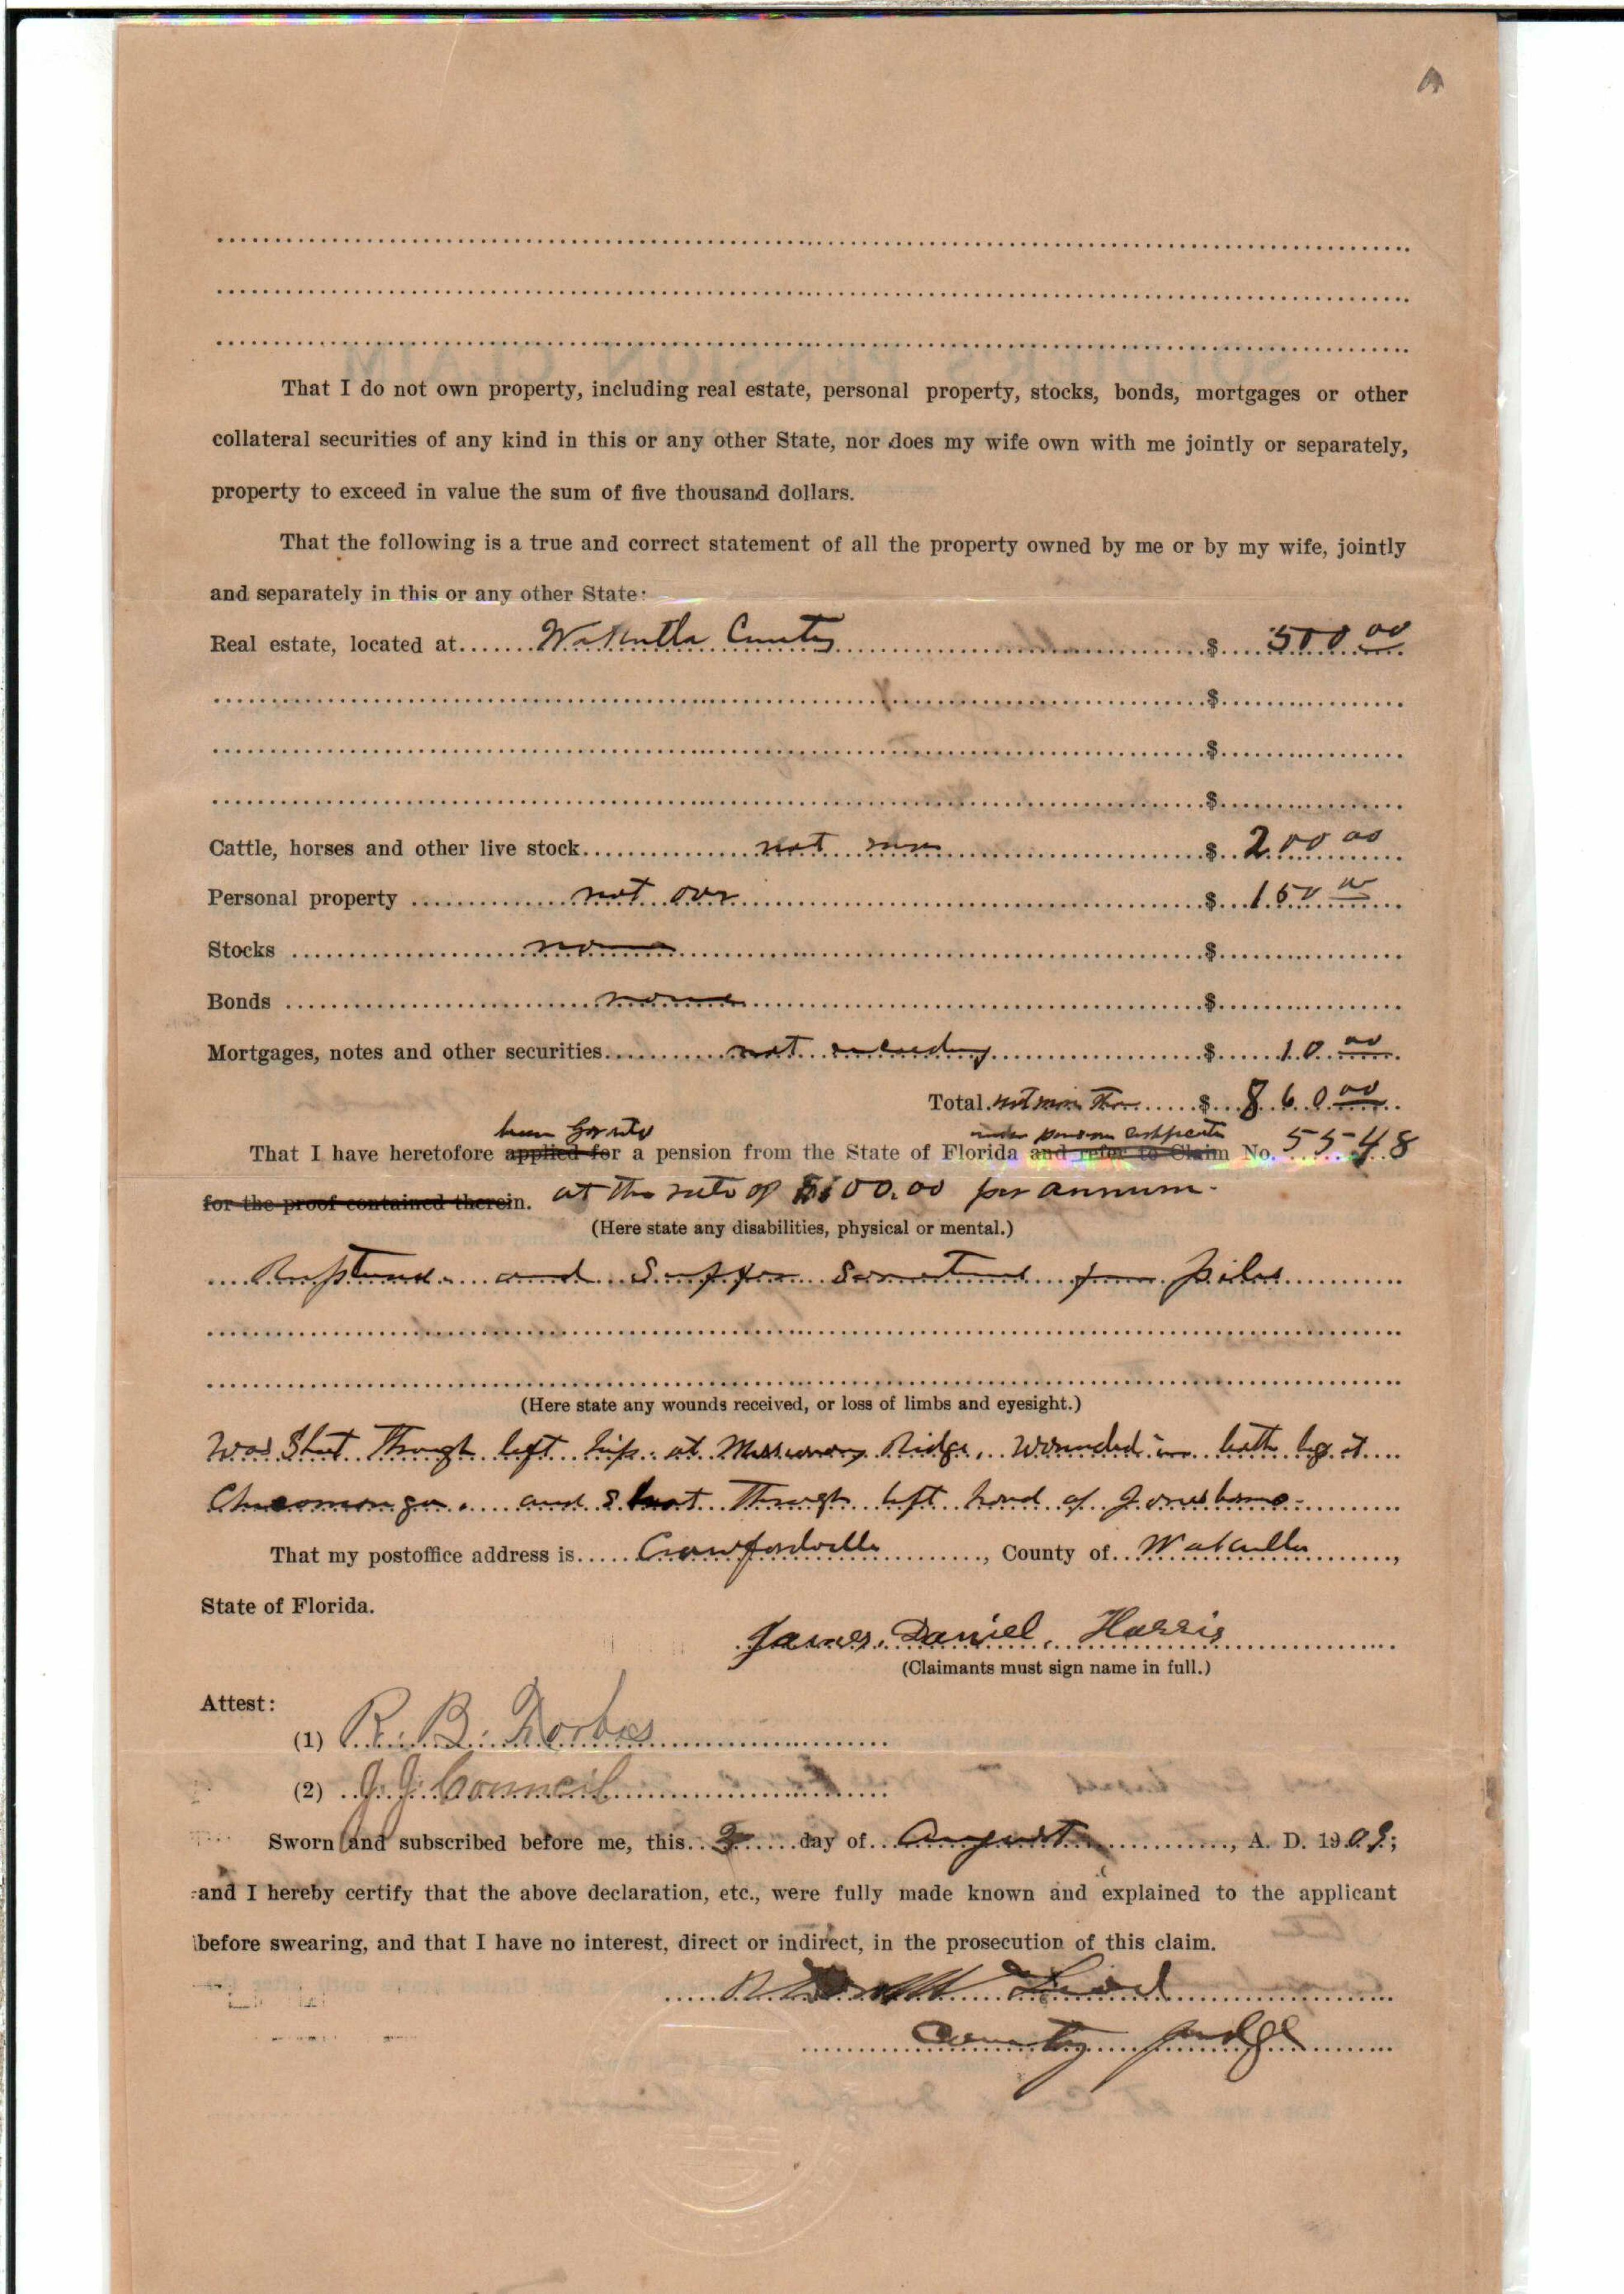 That I do not own property, including real estate, personal property, stocks, bonds, mortgages or other
collateral securities of any kind in this or any other State, nor does my wife own with me jointly or separately,
property to exceed in value the sum of five thousand dollars.
That the following is a true and correct statement of all the property owned by me or by my wife, jointly
and separately in this or any other State:
Real estate, located at Wakulla County $ 500 00
$
$
$
Cattle, horses and other live stock not $ 200 00
Personal property not over $ 150 00
Stocks none $
Bonds none $
Mortgages, notes and other securities not exceeding $ 10 00
Total not more than $ 860 00
been granted under pension certificate
That I have heretofore applied for a pension from the State of Florida and refer to Claim No. 5548
for the proof contained therein. at the rate of $100.00 per annum.
(Here state any disabilities, physical or mental.)
Ruptured and Suffer Sometimes from piles
(Here state any wounds received, or loss of limbs and eyesight.)
Was Shot Through left hip at Missionary Ridge, Wounded in both legs at
and Shot Through left hand at Jonesboro
That my postoffice address is Crawfordville, County of Wakulla,
State of Florida.
James Daniel Harris
(Claimants must sign name in full.)
Attest:
(1) R. B. Forbes
(2) J J Council
Sworn and subscribed before me, this 3 day of August, A. D. 1909;
and I hereby certify that the above declaration, etc., were fully made known and explained to the applicant
before swearing, and that I have no interest, direct or indirect, in the prosecution of this claim.
County Judge